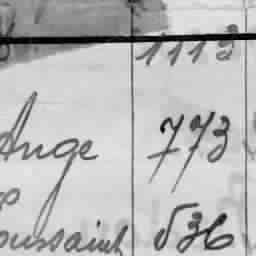 1113
Ange 773
oussaint 536